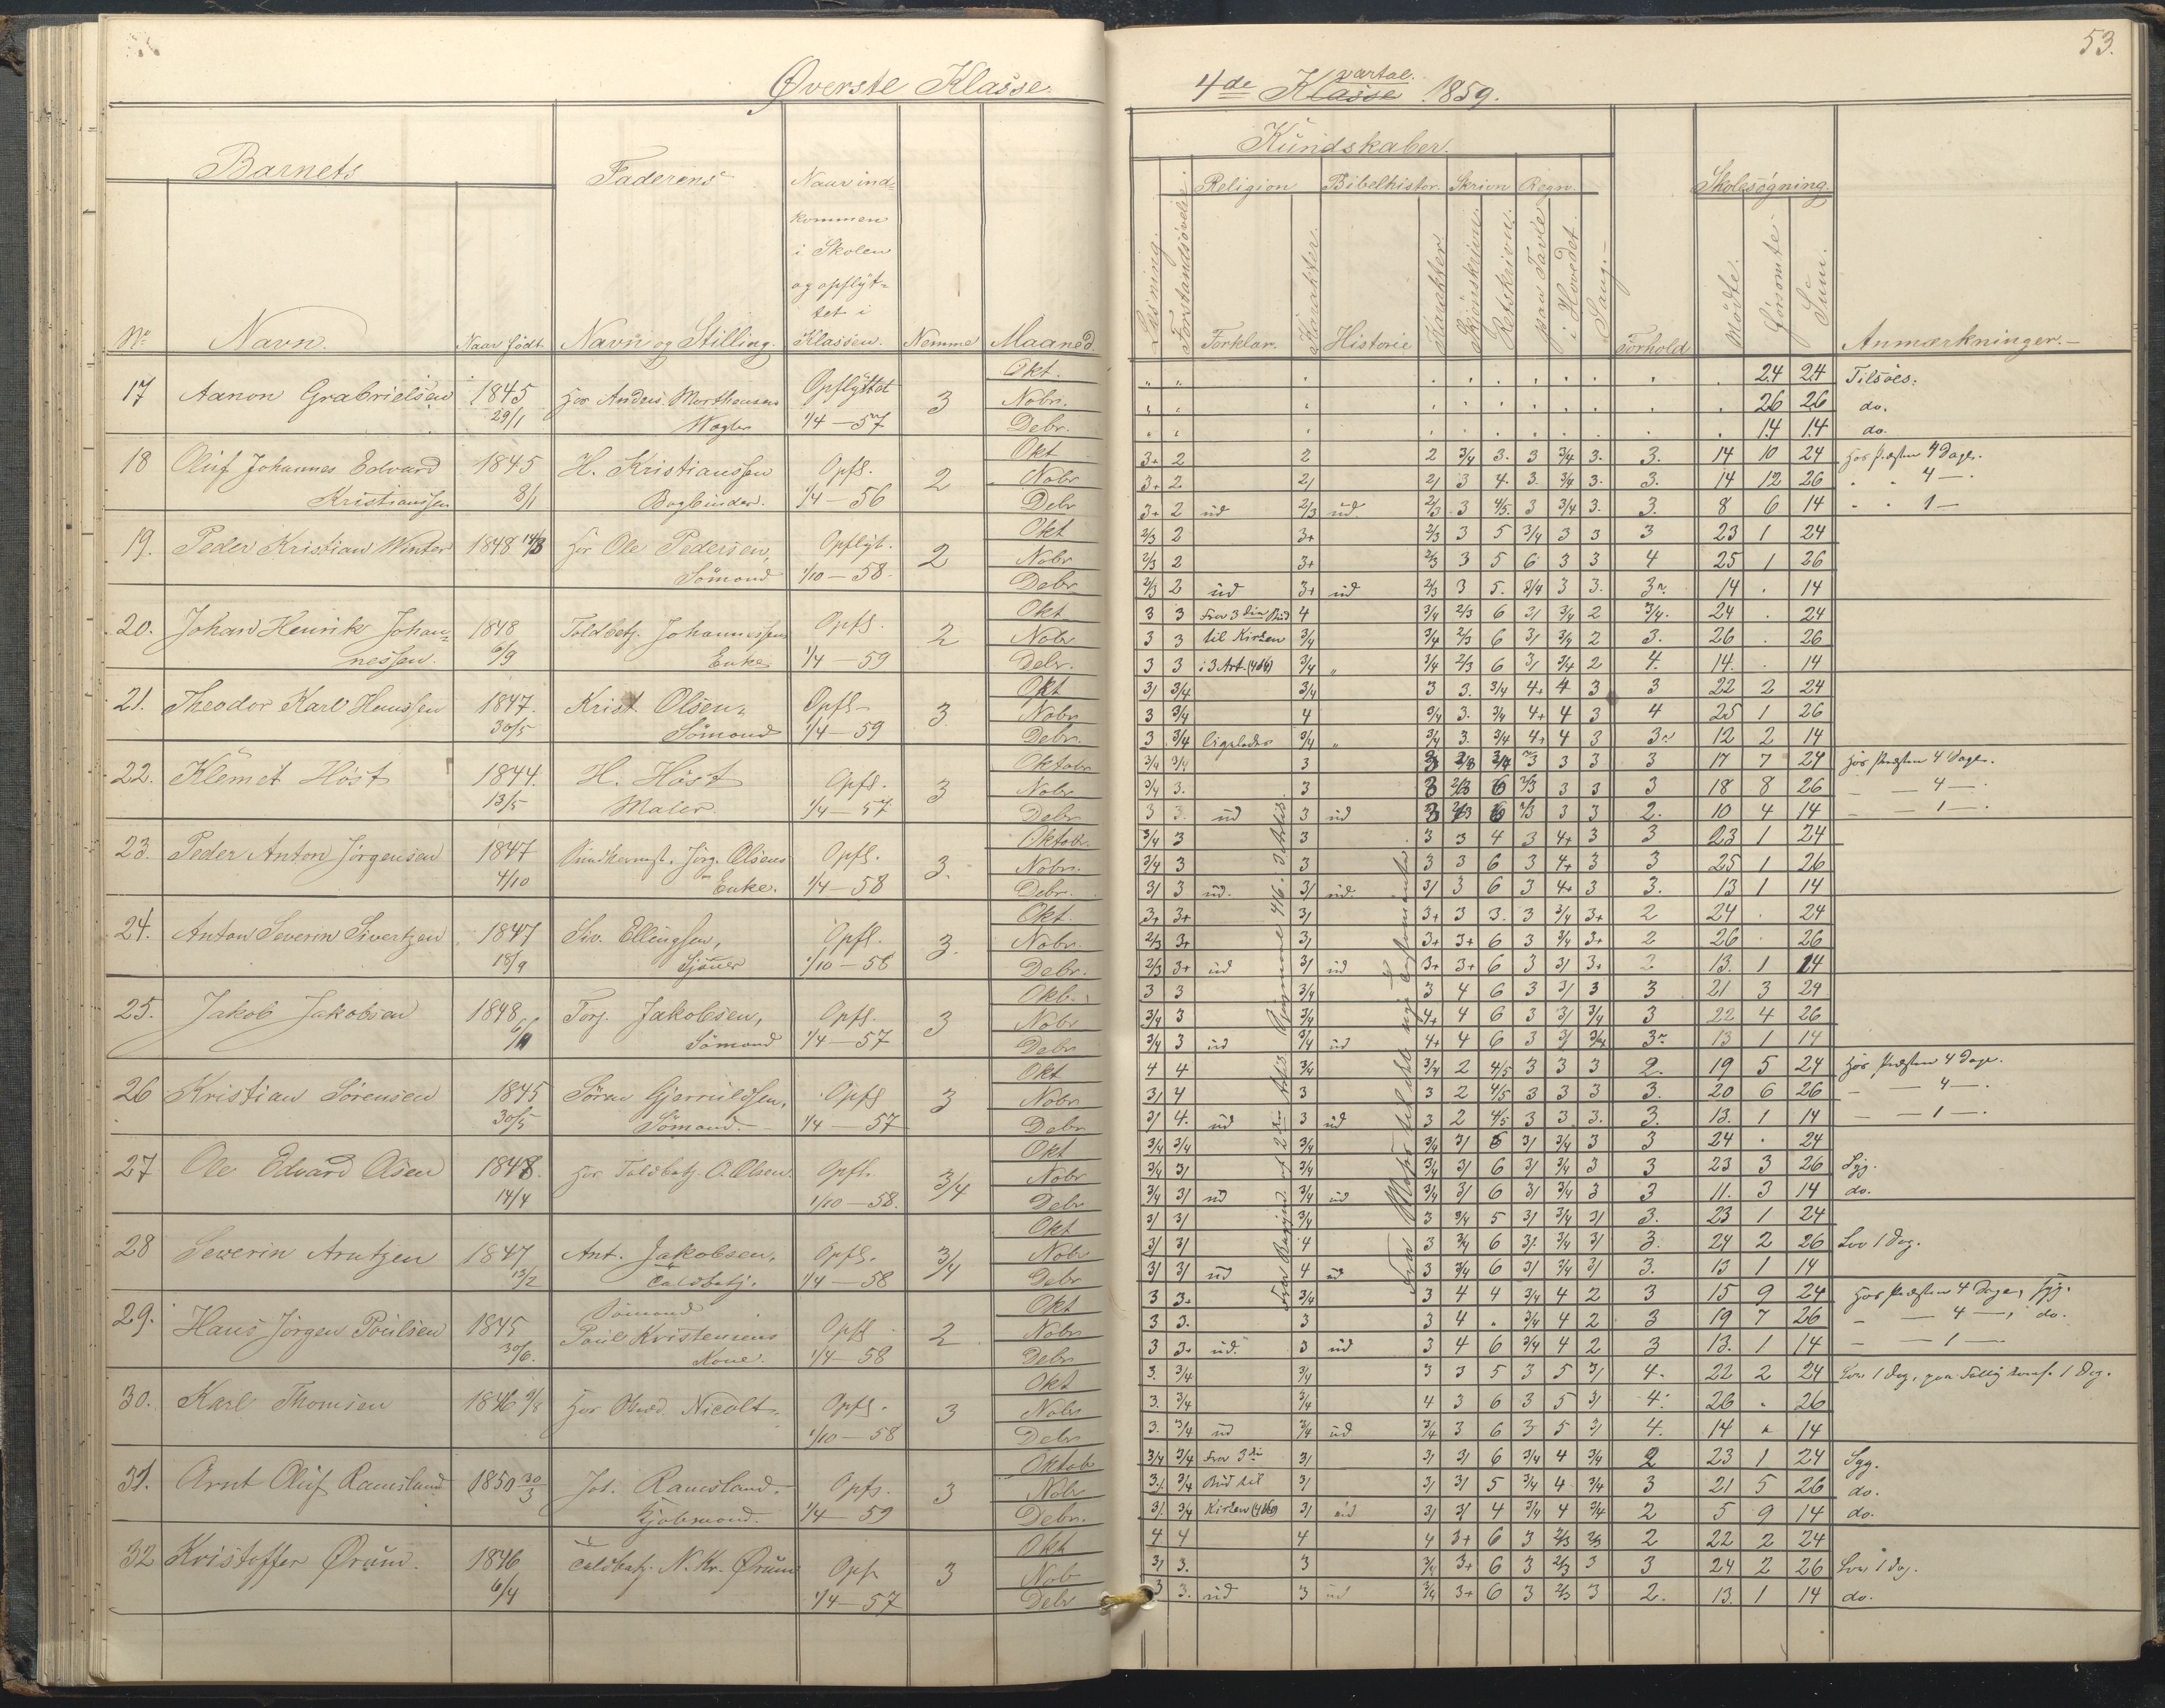 Øverste Klasse.
Barnets
Faderens
Naar ind-
kommen
i Skolen
og opflyt-
tet i
Klassen.
No
Navn.
Naar født.
Navn og Stilling.
Nemme
Maaned.
17 Aanon Grabrielsen 1845 hos Anders Morthensen Opflyttet 3 Okt.
29/1 1/4 — 57 Nobr.
Debr.
18 Oluf Johannes Edvard 1845 H. Kristianssen Opfl. 2 Okt
Kristianssen 8/1 Bogbinder. 1/4 — 56 Nobr
Debr
19. Peder Kristian Winter 1848 14/3 hos Ole Pedersen, Opflyt. 2 Okt
Sømand 1/10 — 58. Nobr
Debr
20. Johan Henrik Johan- 1848 Toldbetj. Johannessens Opfl. 2 Okt
nessen. 6/9 Enke 1/4 — 59 Nobr
Debr.
21. Theodor Karl Hanssen 1847. Krist. Olsen, Opfl. 3 Okt
30/5 Sømand 1/4 — 59 Nobr
Debr.
22. Klemet Høst 1844. H. Høst Opfl. 3 Oktobr
13/5 Maler. 1/4 — 57 Nobr
Debr
23. Peder Anton Jörgensen 1847 Jörg. Olsens Opfl. 3. Oktobr.
4/10 Enke. 1/4 — 58 Nobr.
Debr.
24. Anton Severin Sivertzen 1847 Siv. Ellingsen, Opfl. 3. Okt.
18/9 1/10 — 58 Nobr.
Debr.
25. Jakob Jakobsen 1848 Torj. Jakobsen, Opfl. 3 Okt.
Sømand 1/4 — 57 Nobr
Debr
26 Kristian Sörensen 1845 Sören Gjeruldsen, Opfl 3 Okt
30/5 Sømand. 1/4 — 57 Nobr
Debr
27 Ole Edvard Olsen 1848. hos Toldbetj. O. Olsen. Opfl. 3/4 Okt
14/4 1/10 — 58. Nobr
Debr
28 Severin Arntzen 1847 Ant. Jakobsen, Opfl. 3/4 Okt
13/2 Toldbetj. 1/4 — 58 Nobr
Debr
29. Hans Jörgen Poulsen 1845 Sømand Opfl 2 Okt
30/6. Poul Kristensens 1/4 — 58 Nobr
Kone. Debr
30. Karl Thomsen 1846 hos Nicolt. Opfl. 3 Okt
1/10 — 58 Nobr
Debr
31. Arnt Oluf Ramsland 1850 30/3 Joh. Ramsland. Opfl. 3 Oktob
1/4 — 59 Nobr
Debr.
32 Kristoffer Ørum. 1846 Toldbetj. N. Kr. Ørum Opfl 3 Okt
6/4 1/4 — 57 Nobr
Debr
53.
4de Klasse vartal. 1859.
Kundskaber.
Religion Bibelhistor. Skrivn Regn.
Skolesøgning.
Læsning.
Forstandsøvelse.
Forklar.
Karakter.
Historie
Karakter
Skjönskrivn.
Retskrivn.
paa Tavle
i Hovedet.
Sang.
Forhold
Mødte.
Forsømte
Sum.
Anmærkninger.
24 24 Tilsöes.
26 26 do.
14 14 do.
3+ 2 2 2 3/4 3. 3 3/4 3. 3. 14 10 24 hos Præsten 4 Dage.
3+ 2 2/ 2/ 3 4. 3. 3/4 3. 3. 14 12 26 " " 4 —.
3+ 2 ud 2/3 ud. 2/3 3 4/5. 3 3/4 3. 3. 8 6 14 " " 1 —
2/3 2 3+ 2/3 3 5 3/4 3 3 3 23 1 24
2/3 2 3+ 2/3 3 5 6 3 3 4 25 1 26
2/3 2 ud 3+ ud 2/3 3 5. 3/4 3 3. 3 14 . 14
3 3 Fra 3die Bud 4 3/4 2/3 6 3/ 3/4 2 3/4. 24 . 24
3 3 til Kirken 3/4 3/4 2/3 6 3/ 3/4 2 3. 26 . 26
3 3 i 3 Art. 3/4 " 3/4 2/3 6 3/ 3/4 2 4. 14. . 14
3/ 3/4 3/4 3 3. 3/4 4+ 4 3 3 22 2 24
3 3/4 4 3/4 3. 3/4 4+ 4 3 4 25 1 26
3 3/4 ligeledes 3/4 " 3/4 3. 3/4 4+ 4 3 3 12 2 14
3/4 3/4 3 3 3 3 3 17 7 24 hos Præsten 4 Dage.
3/4 3. 3 3 2/3 6 2/3 3 3 3 18 8 26 — — 4 —.
3 3. ud 3 ud 3 2/3 6 2/3 3 3 2. 10 4 14 — — 1 —.
3/4 3 3 3 3 4 3 4+ 3 3 23 1 24
3/4 3 3 3 3 6 3 4+ 3 3 25 1 26
3/ 3 ud. 3/ ud. 3/ 3 6 3 4+ 3 3. 13 1 14
3+ 3+ 3/ 3+ 3 3. 3 3/4 3+ 2 24 . 24
2/3 3+ 3/ 3+ 3+ 6 3 3/4 3+ 2 26 . 26
2/3 3+ ud 3/ ud 3+ 3+ 6 3 3/ 3+ 2 13. 1 14
3 3 3/4 3 4 6 3 3/ 3 3 21 3 24
3/4 3 3/4 4+ 4 6 3 3/ 3/4 3 22 4 26
3/4 3 ud 3/4 ud 4+ 4 6 3 3/ 3/4 3 13 1 14
4 4 3/4 3/4 2 4/5 3 3 3 2. 19 5 24 hos Præsten 4 Dage.
3/ 4 3 3 2 4/5 3 3 3 3. 20 6 26 — — 4 —.
3/ 4. ud 3 ud 3 2 4/5 3 3 3. 3. 13. 1 14 — — 1 —.
3/4 3/4 3/4 3/4 3/ 6 3/ 3/4 3 3 24 . 24
3/4 3/ 3/4 3/4 3/ 6 3/ 3/4 3 3 23 3 26 Syg.
3/4 3/ ud 3/4 ud 3/4 3/ 6 3/ 3/4 3 3 11. 3 14 do.
3/ 3/ 3/4 3 3/4 5 3/ 3/4 3/ 3. 23 1 24
3/ 3/ 4 3 3/4 6 3/ 3/4 3/ 3. 24 2 26 Lov 1 Dag.
3/ 3/ ud 4 ud 3 3/4 6 3/ 3/4 3/ 3. 13 1 14
3 3+ 3/4 3 4 4 3/4 4 2 3 15 9 24 hos Præsten 4 Dage, syg.
3 3. 3 3 4 . 3/4 4 2 3 19 7 26 — — 4 —, do.
3 3+ ud. 3 ud 3 4 6 3/4 4 2 3 13. 1 14 — — 1 —
3. 3/4 3/4 3 3 5 3 5 3/ 4. 22 2 24 Lov 1 Dag, 1 Dag.
3. 3/4 3/4 4 3 6 3 5 3/ 4. 26 . 26
3. 3/4 ud 3/4 ud 3/4 3 6 3 5 3/ 4. 14 . 14
3/4 3/4 Fra 3die 3/ 3/ 3/ 6 3/4 4 3/4 2 23 1 24 Syg.
3/ 3/4 Bud til 3/ 3/ 3/ 5 3/4 4 3/4 3 21 5 26 do.
3/ 3/4 Kirken 3/ ud 3/ 3/ 4 3/4 4 3/4 2 5 9 14 do.
4 4 4 4 3+ 6 3 2/3 2/3 2 22 2 24
3/ 3. 3 3/4 3+ 6 3 2/3 3 3 24 2 26 Lov 1 Dag.
3 3. ud 3 ud 3/4 3+ 6 3 2/3 3 2. 13. 1 14 do.